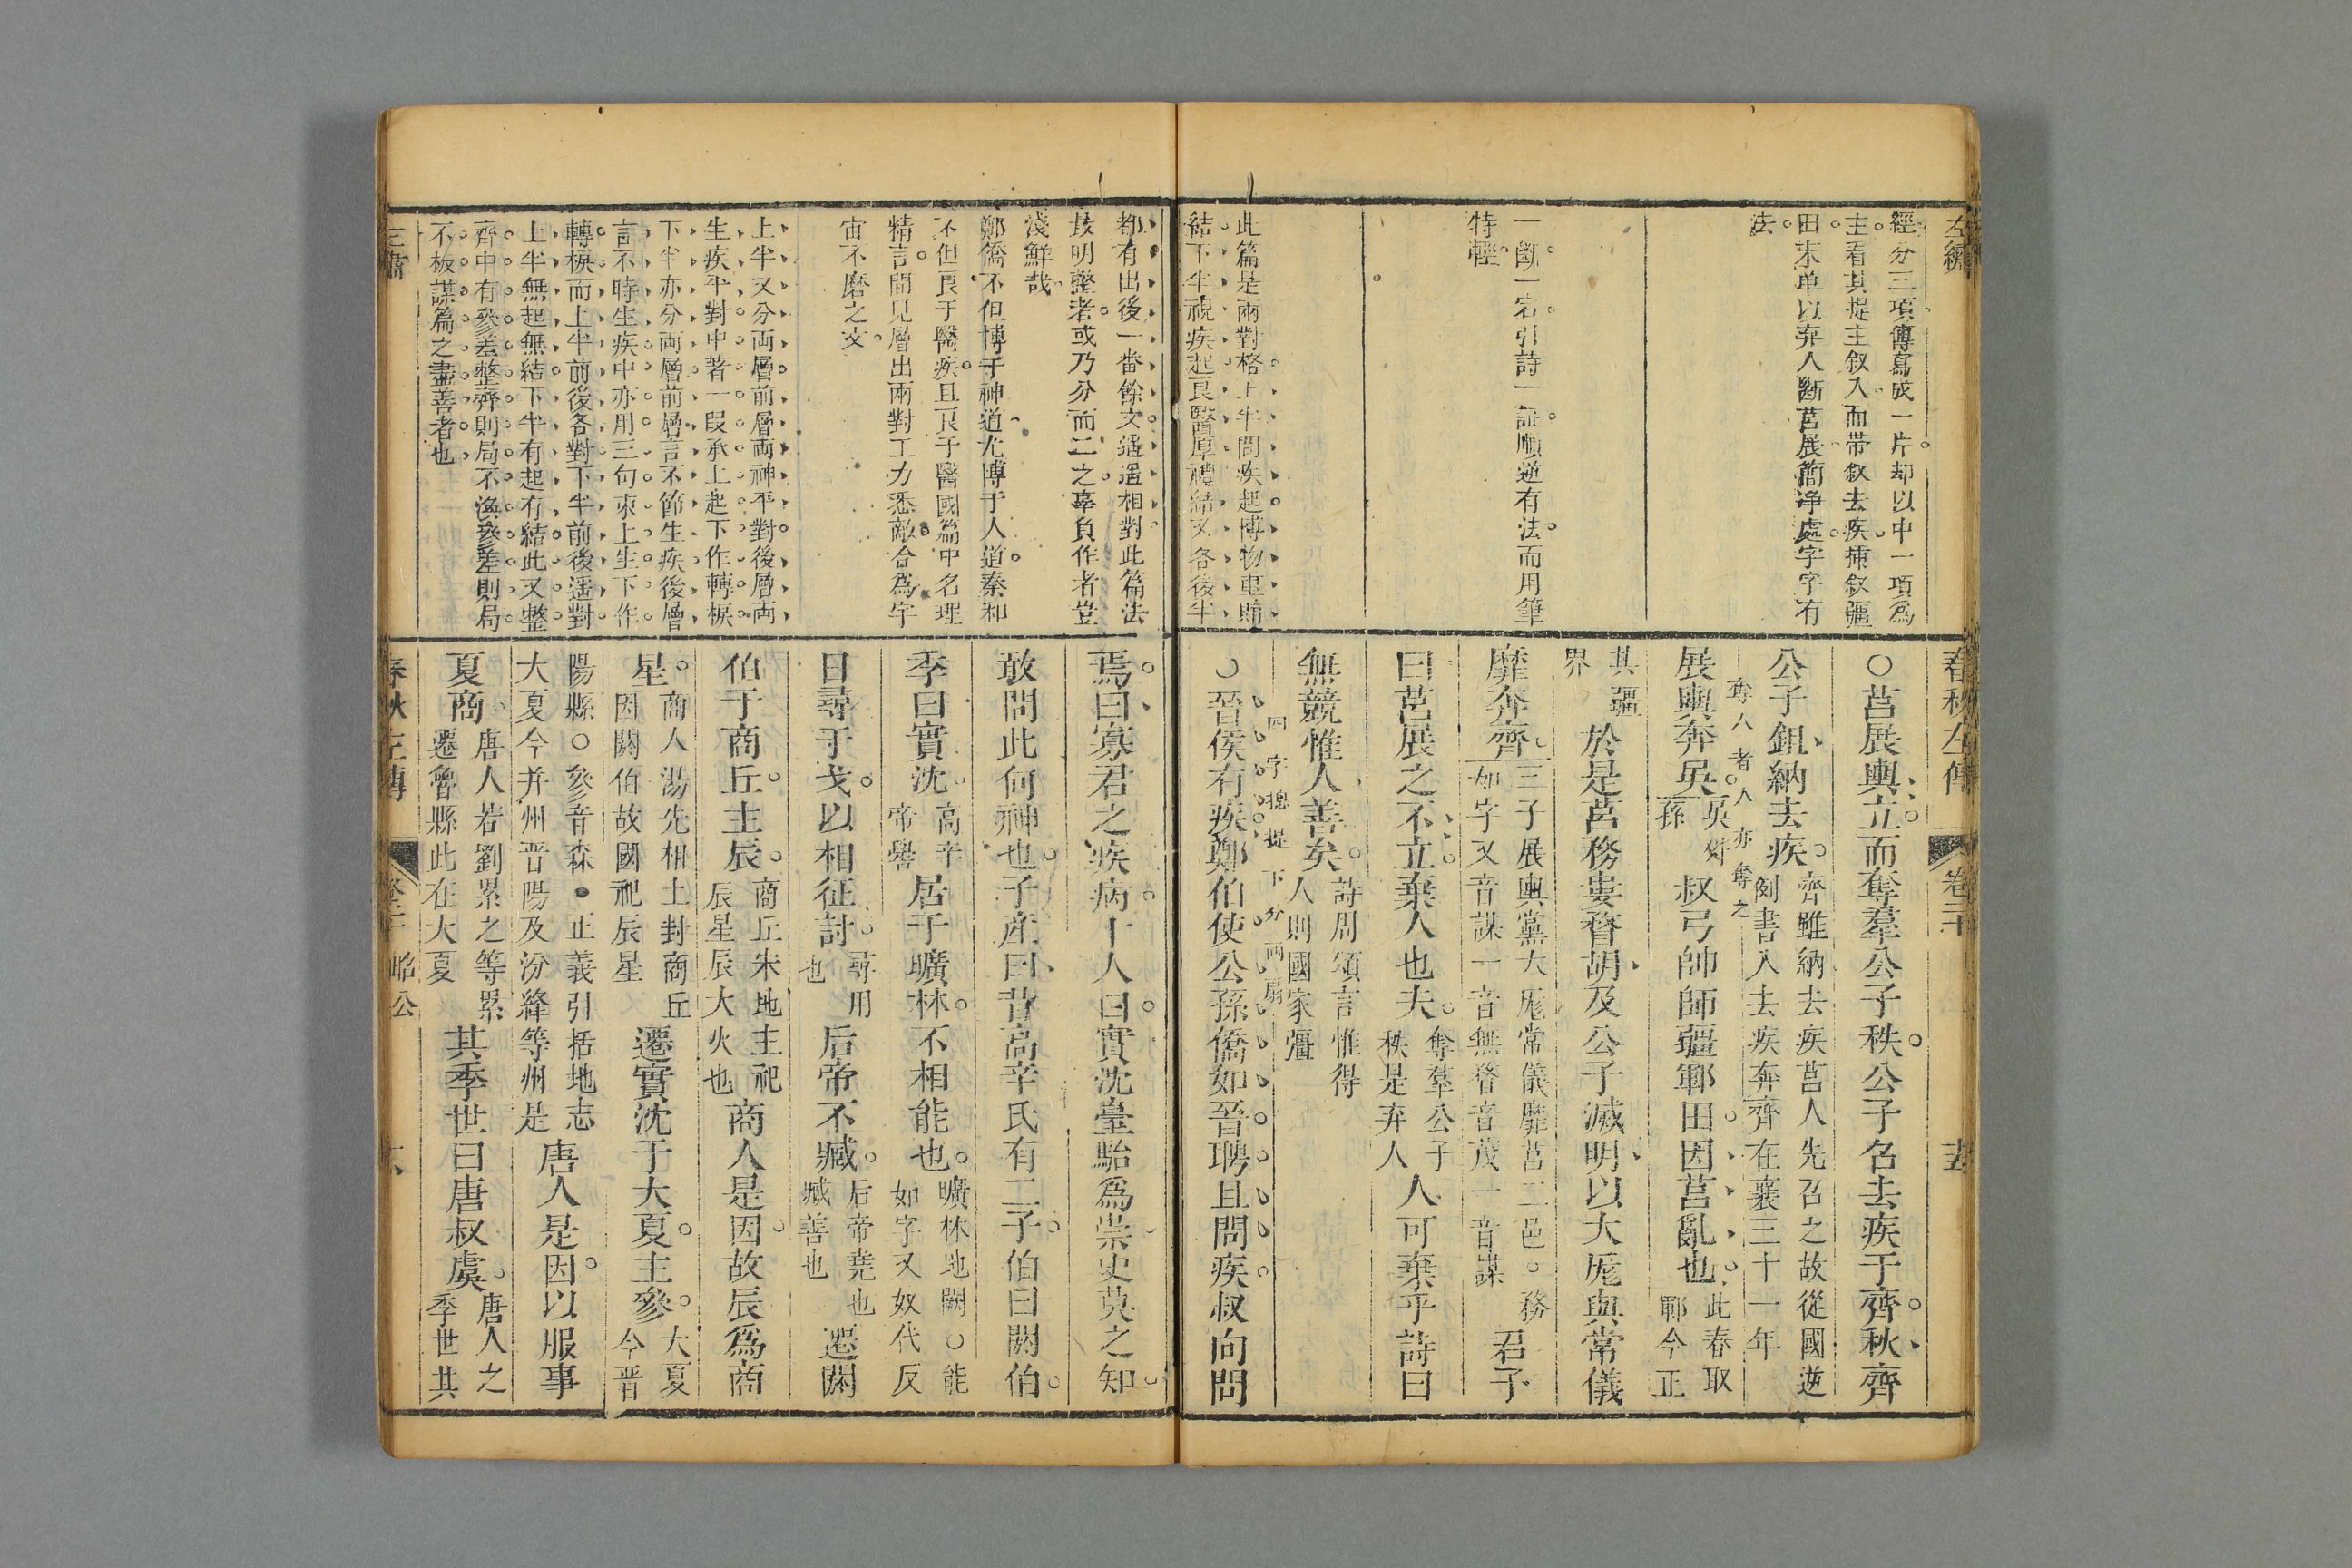 左繡
經分三項傳寫成一片却以中一項爲
主看其提主叙入而帶叙去疾揷叙疆
田末单以弃人斷莒展簡净處字字有
法
一斷一宕引詩一証順逆有法而用筆
特輕
此篇是兩對格上半問疾起博物重賄
結下半視疾起良醫厚禮結又各後半
春秋左傳 卷二十 十五
○莒展輿立而奪羣公子秩公子召去疾于齊秋齊
公子鉏納去疾齊雖納去疾莒人先召之故從國逆
例書入去疾奔齊在襄三十一年
奪人者人亦奪之
展輿奔吳吳外
孫叔弓帥師疆鄆田因莒亂也此春取
鄆今正
其疆
界於是莒務婁瞀胡及公子滅明以大厖與常儀
靡奔齊三子展輿黨大厖常儀靡莒二邑○務
如字又音謀一音無瞀音茂一音謀君子
曰莒展之不立棄人也夫奪羣公子
秩是弃人人可棄乎詩曰
無競惟人善矣詩周頌言惟得
人則國家彊
四字總提下分兩扇
○晉侯有疾鄭伯使公孫僑如晉聘且問疾叔向問
都有出後一番餘文遥遥相對此篇法
最明整者或乃分而二之辜負作者豈
淺鮮哉
鄭僑不但博于神道尤博于人道秦和
不但良于醫疾且良于醫國篇中名理
精言間見層出兩對工力悉敵合爲宇
宙不磨之文
上半又分両層前層両神平對後層両
生疾平對中著一段承上起下作轉棙
下半亦分両層前層言不節生疾後層
言不時生疾中亦用三句束上生下作
轉棙而上半前後各對下半前後遥對
上半無起無結下半有起有結此又整
齊中有參差整齊則局不渙參差則局
不板謀篇之盡善者也
焉曰寡君之疾病卜人曰實沈臺駘爲祟史莫之知
敢問此何神也子産曰昔高辛氏有二子伯曰閼伯
季曰實沈高辛
帝嚳居于曠林不相能也曠林地闕○能
如字又奴代反
日尋干戈以相征討尋用
也后帝不臧后帝堯也
臧善也遷閼
伯于商丘主辰商丘宋地主祀
辰星辰大火也商人是因故辰爲商
星商人湯先相土封商丘
因閼伯故國祀辰星遷實沈于大夏主參大夏
今晋
陽縣○參音森●正義引括地志
大夏今并州晋陽及汾絳等州是唐人是因以服事
夏商唐人若劉累之等累
遷魯縣此在大夏其季世曰唐叔虞唐人之
季世其
春秋左傳 昭公